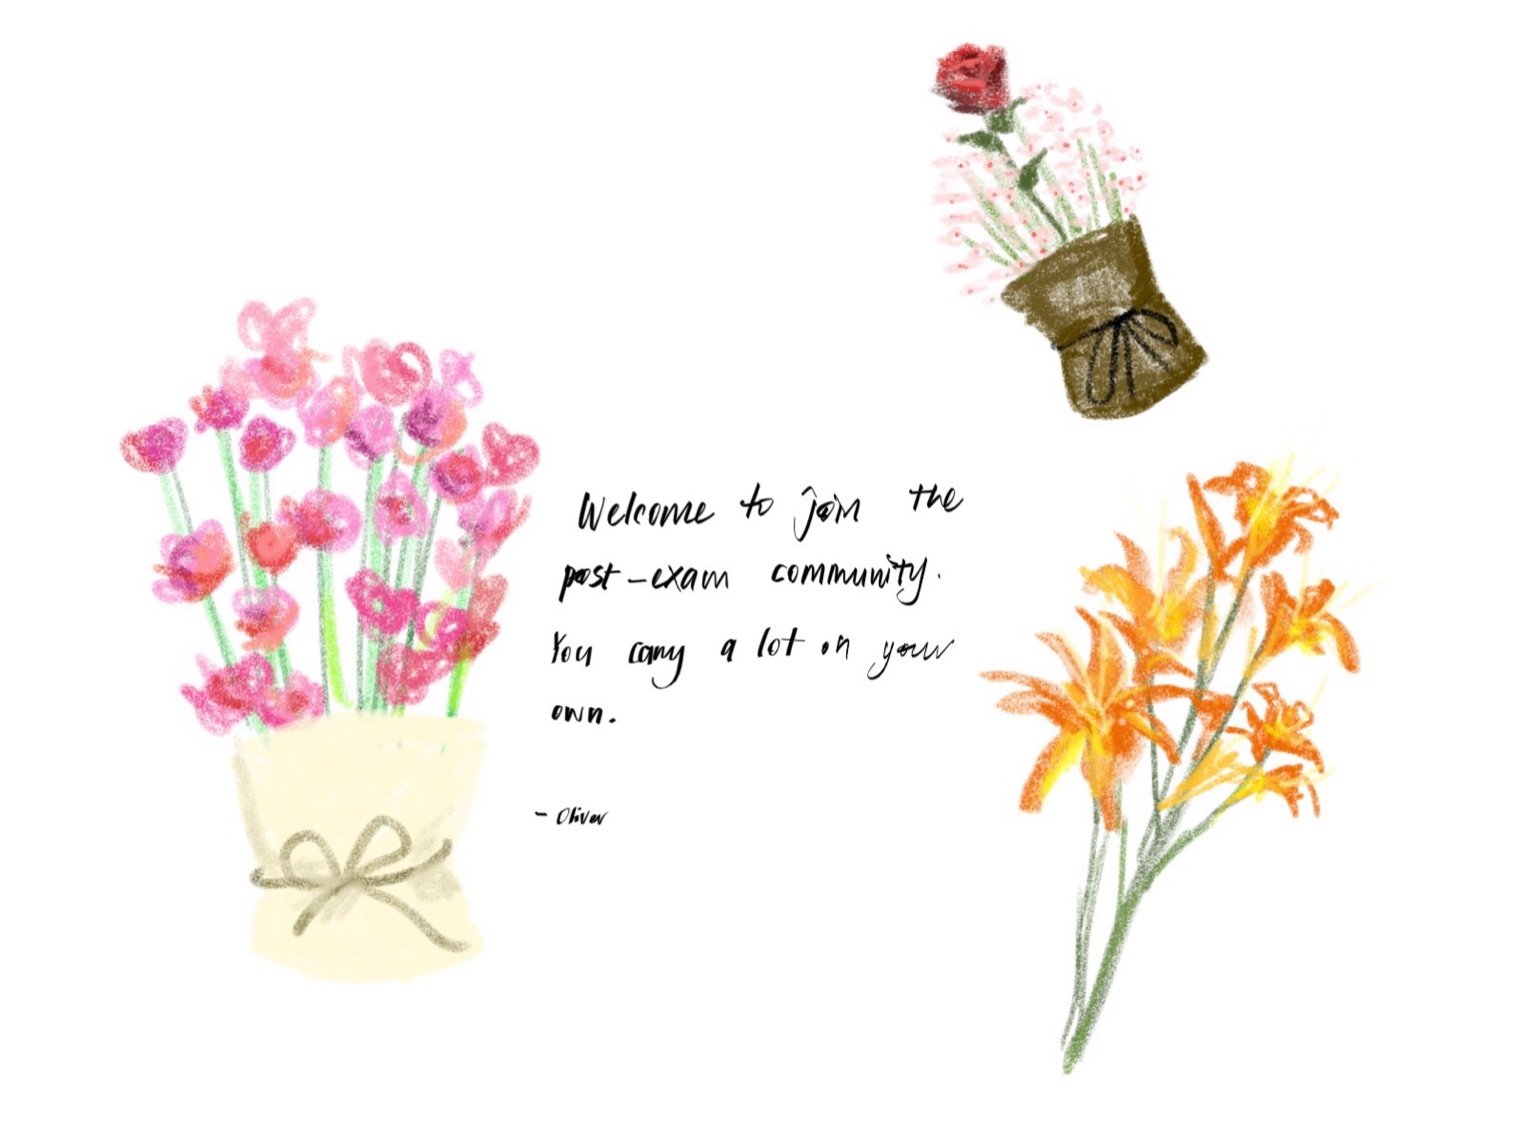 Welcome to join the
post-exam community.
You carry a lot on your
own.
- Oliver